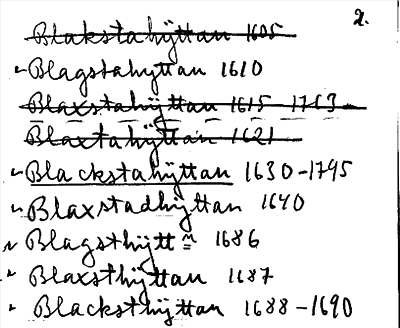 2.
Blakstahÿttan 1605
Blagstahyttan 1610
Blaxstahÿttan 1615-1763
Blaxtahÿttan 1621
Blackstahÿttan 1630-1795
Blaxstadhÿttan 1640
Blagsthÿtt 1686
Blaxsthÿttan 1687
Blacksthÿttan 1688-1690